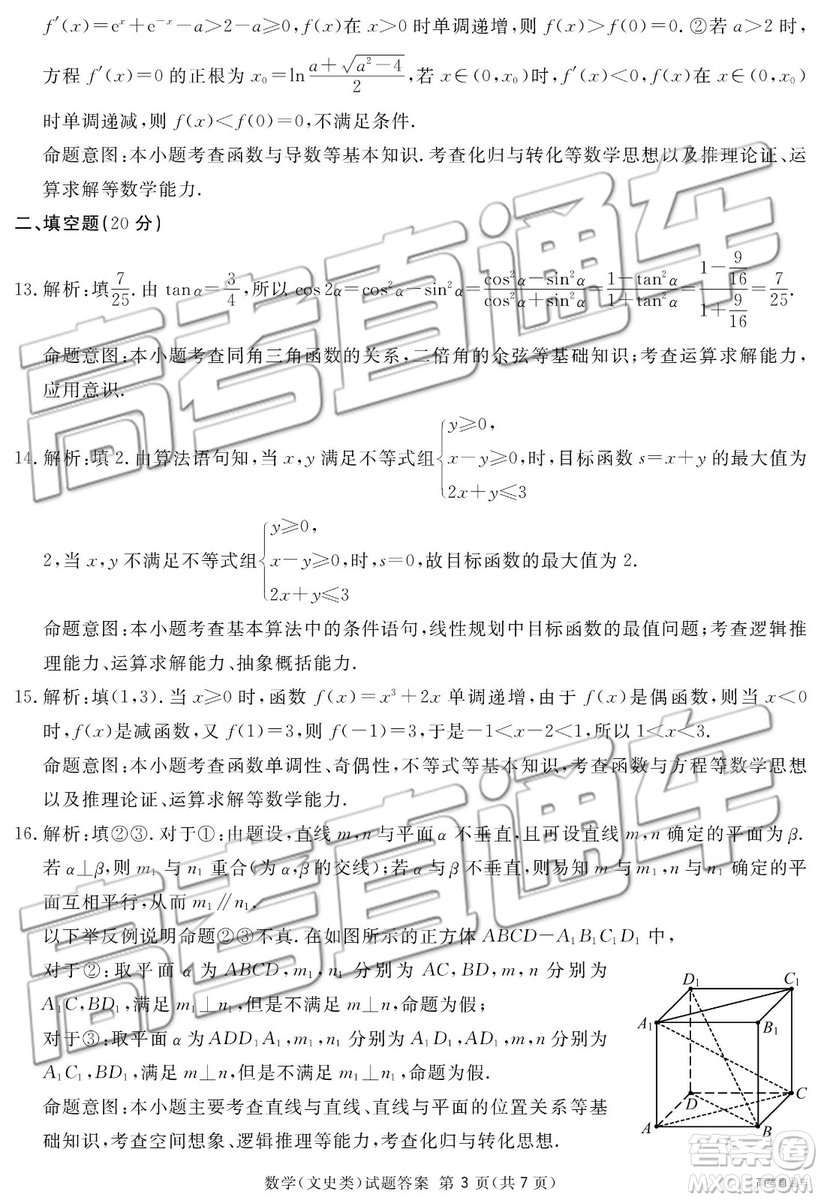 f′(x)=eˣ+e⁻ˣ−a>2−a≥0,f(x)在 x>0 时单调递增,所以 f(x)>f(0)=0. ②若 a>2 时,
方程 f′(x)=0 的正根为 x₀=ln (a+√(a²−4))/2,若 x∈(0,x₀)时,f′(x)<0,f(x)在 x∈(0,x₀)
时单调递减,则 f(x)<f(0)=0,不满足条件.
命题意图:本小题考查函数与导数等基本知识.考查化归与转化等数学思想以及推理论证、运
算求解等数学能力.
二、填空题(20 分)
13.解析:填 7/25. 由 tanα=3/4,所以 cos2α=cos²α−sin²α=(cos²α−sin²α)/(cos²α+sin²α)=(1−tan²α)/(1+tan²α)=(1−9/16)/(1+9/16)=7/25.
命题意图:本小题考查同角三角函数的关系,二倍角的余弦等基础知识;考查运算求解能力,
应用意识.
14.解析:填 2. 由算法语句知,当 x,y 满足不等式组{y≥0, x−y≥0, 2x+y≤3 时,目标函数 s=x+y 的最大值为
2,当 x,y 不满足不等式组{y≥0, x−y≥0, 2x+y≤3 时,s=0,故目标函数的最大值为 2.
命题意图:本小题考查基本算法中的条件语句,线性规划中目标函数的最值问题;考查逻辑推
理能力、运算求解能力、抽象概括能力.
15.解析:填(1,3). 当 x≥0 时,函数 f(x)=x³+2x 单调递增,由于 f(x)是偶函数,则当 x<0
时,f(x)是减函数,又 f(1)=3,则 f(−1)=3,于是−1<x−2<1,所以 1<x<3.
命题意图:本小题考查函数单调性、奇偶性,不等式等基本知识;考查函数与方程等数学思想
以及推理论证、运算求解等数学能力.
16.解析:填②③. 对于①:由题设,直线 m,n 与平面 α 不垂直,且可设直线 m,n 确定的平面为 β.
若 α⊥β,则 m₁ 与 n₁ 重合(为 α,β 的交线);若 α 与 β 不垂直,则易知 m 与 m₁,n 与 n₁ 确定的平
面互相平行,从而 m₁∥n₁.
以下举反例说明命题②③不真. 在如图所示的正方体 ABCD−A₁B₁C₁D₁ 中,
对于②:取平面 α 为 ABCD,m₁,n₁ 分别为 AC,BD,m,n 分别为
A₁C,BD₁,满足 m₁⊥n₁,但是不满足 m⊥n,命题为假;
对于③:取平面 α 为 ADD₁A₁,m₁,n₁ 分别为 A₁D₁,AD₁,m,n 分别为
A₁C₁,BD₁,满足 m⊥n,但是不满足 m₁⊥n₁,命题为假.
命题意图:本小题主要考查直线与直线、直线与平面的位置关系等基
础知识,考查空间想象、逻辑推理等能力,考查化归与转化思想.
D₁
C₁
A₁
B₁
D
C
A
B
数学(文史类)试题答案 第 3 页(共 7 页)
高考直通车
高考直通车
答案圈